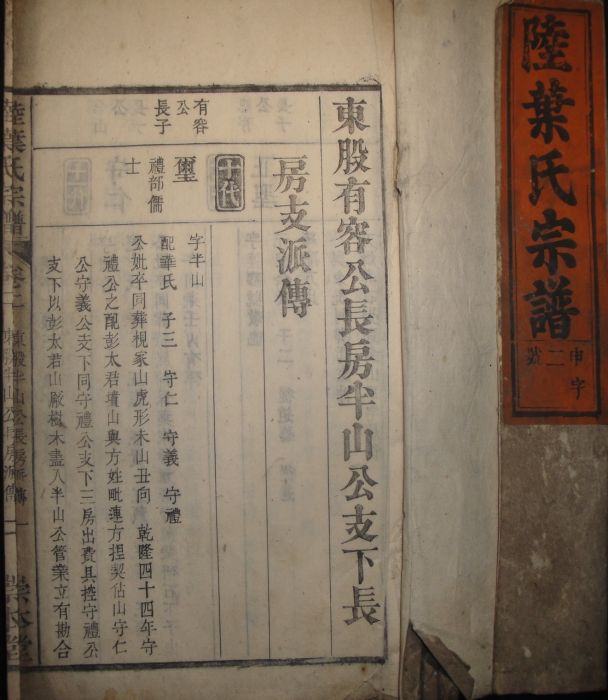 陸葉氏宗譜
申字
二號
東股有容公長房半山公支下長
房支派傳
十代
有容
公
長子
璽
禮部儒
士
字半山
配華氏 子三 守仁 守義 守禮
公妣卒同葬梘家山虎形未山丑向 乾隆四十四年守
禮公之配彭太君墳山與方姓毗連方捏契佔山守仁
公守義公支下同守禮公支下三房出費具控守禮公
支下以彭太君山廠樹木盡入半山公管業立有勘合
陸葉氏宗譜
卷二
東股半山公長房派傳